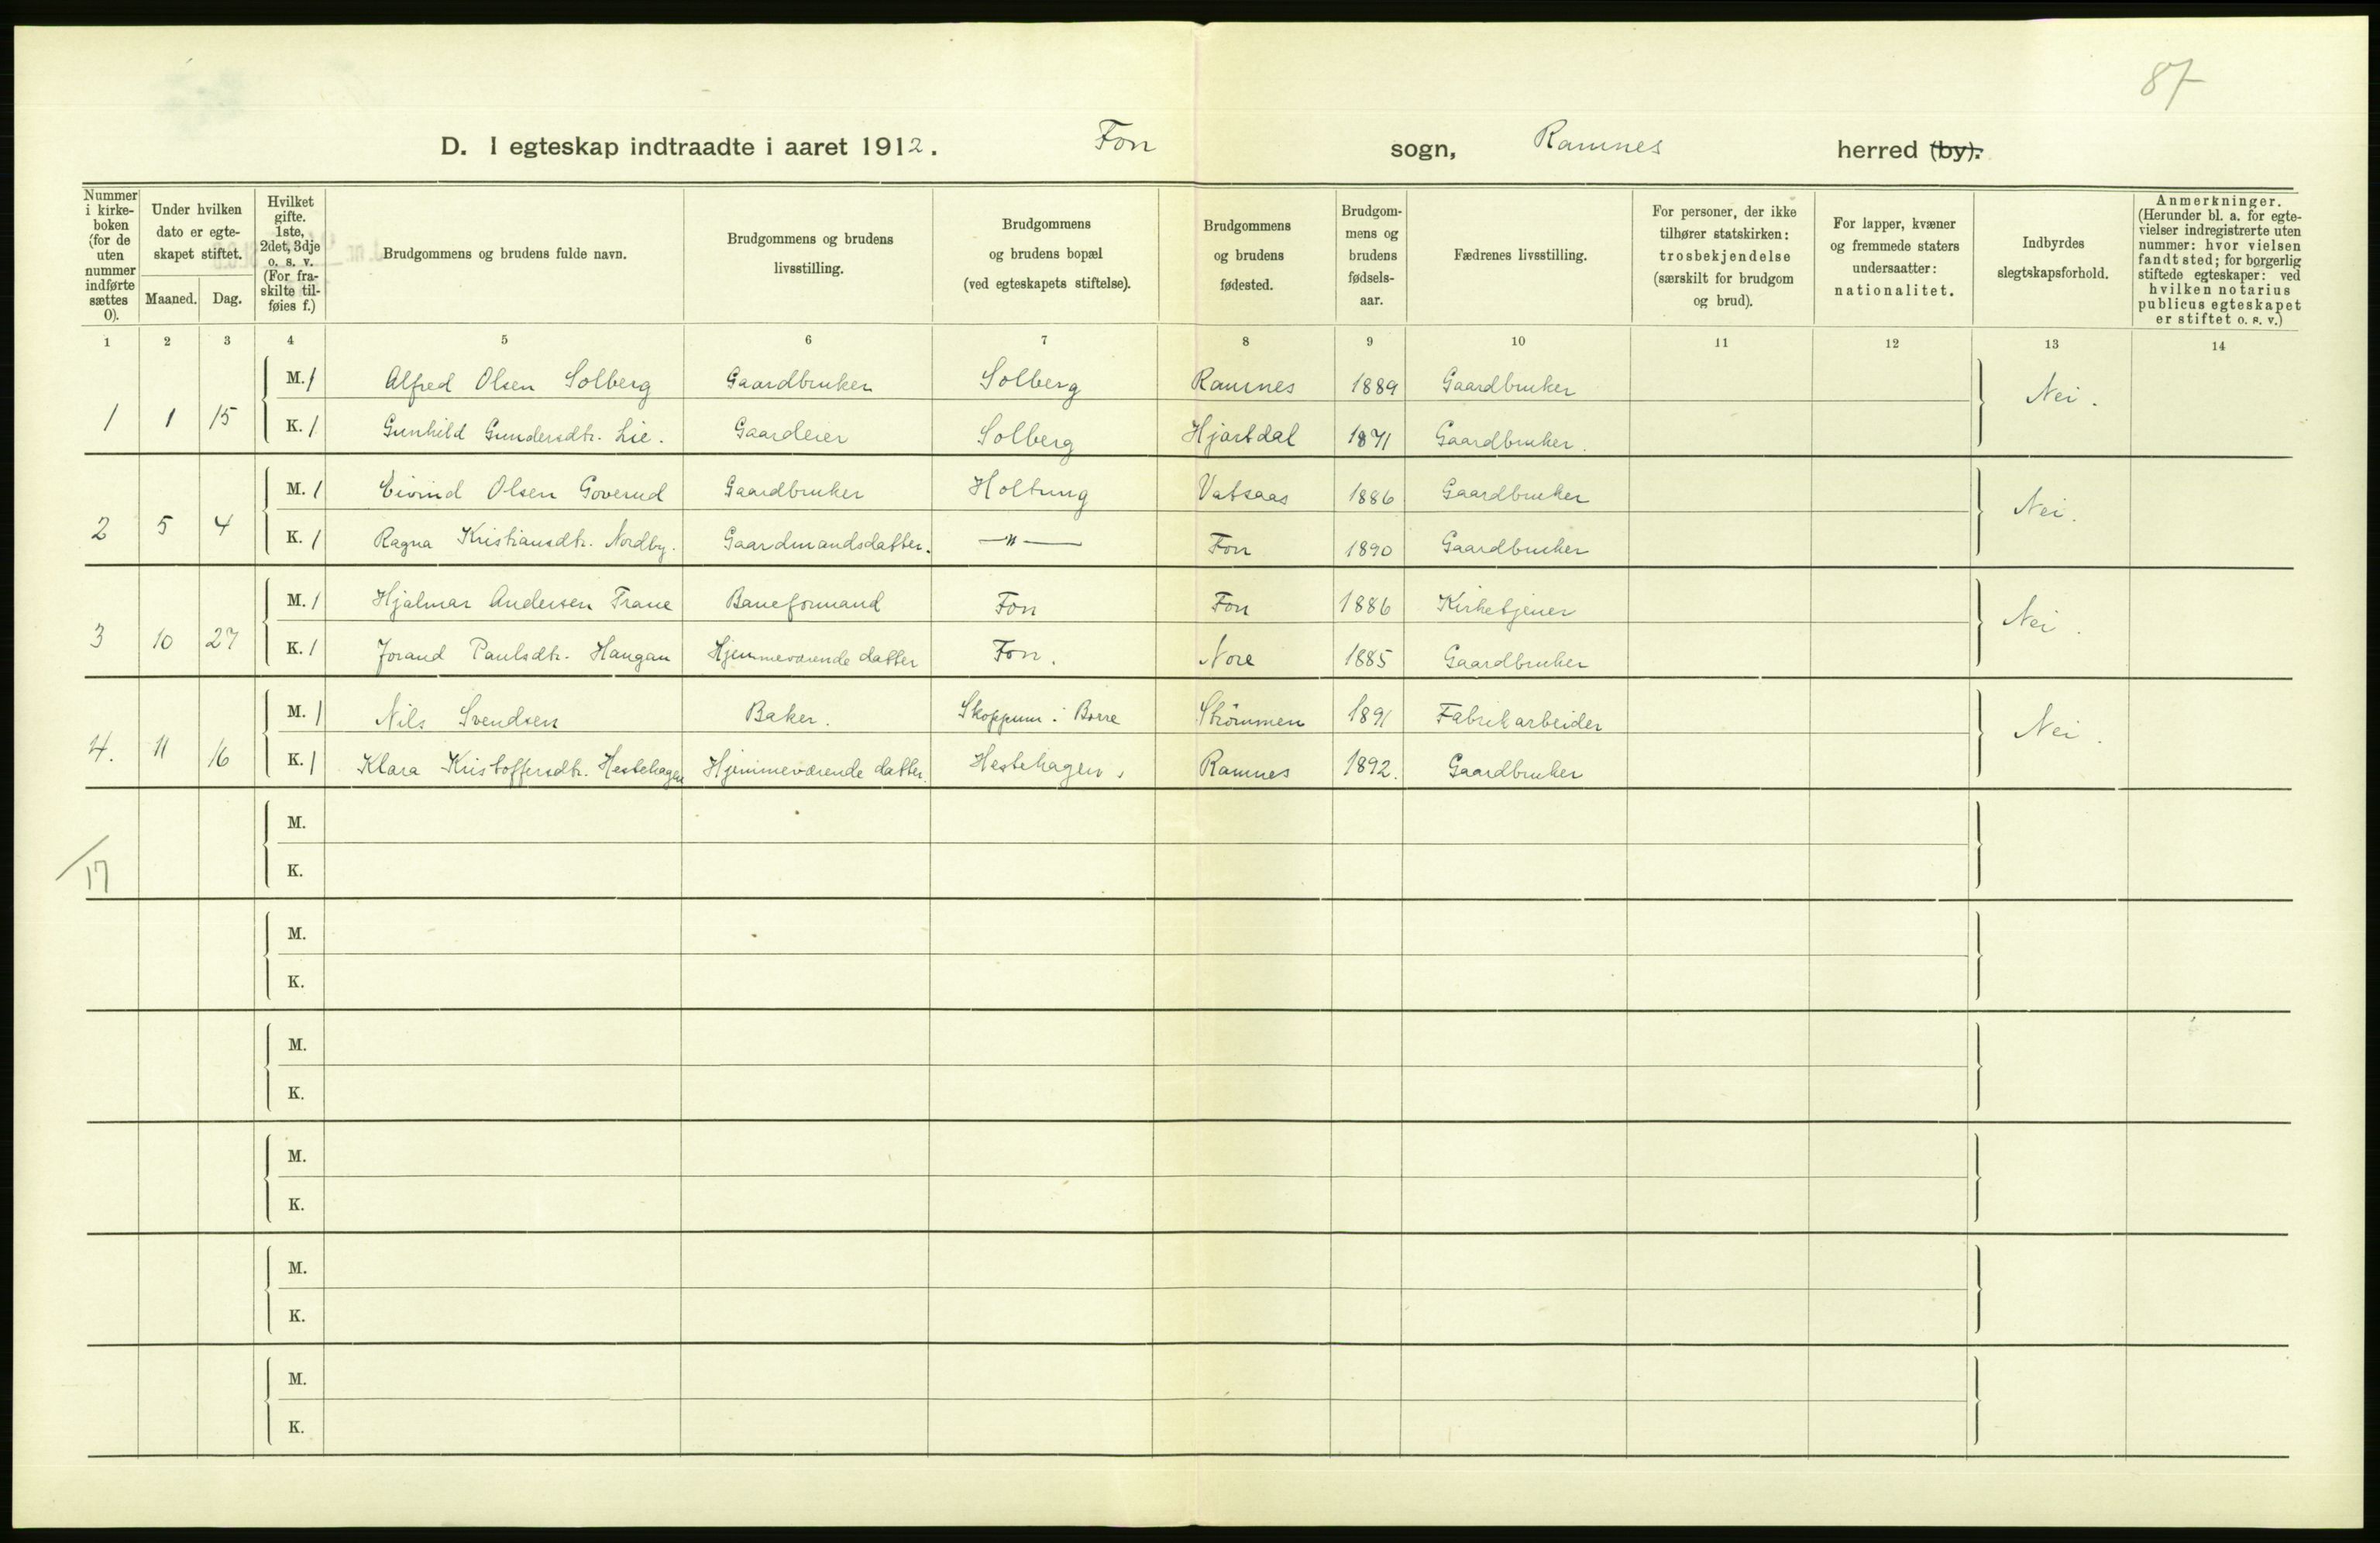 87
D. I egteskap indtraadte i aaret 1912. Fon sogn, Ramnes herred (by).
Nummer i kirkeboken (for de uten nummer indførte sættes 0).
Under hvilken dato er egteskapet stiftet.
Maaned. Dag.
Hvilket gifte. 1ste, 2det, 3dje o. s. v. (For fraskilte tilføies f.)
Brudgommens og brudens fulde navn.
Brudgommens og brudens livsstilling.
Brudgommens og brudens bopæl (ved egteskapets stiftelse).
Brudgommens og brudens fødested.
Brudgommens og brudens fødselsaar.
Fædrenes livsstilling.
For personer, der ikke tilhører statskirken: trosbekjendelse (særskilt for brudgom og brud).
For lapper, kvæner og fremmede staters undersaatter: nationalitet.
Indbyrdes slegtskapsforhold.
Anmerkninger. (Herunder bl. a. for egtevielser indregistrerte uten nummer: hvor vielsen fandt sted; for borgerlig stiftede egteskaper: ved hvilken notarius publicus egteskapet er stiftet o. s. v.)
1 2 3 4 5 6 7 8 9 10 11 12 13 14
M. 1 Alfred Olsen Solberg Gaardbruker Solberg Ramnes 1889 Gaardbruker Nei.
1 1 15 K. 1 Gunhild Gundersdtr. Lie. Gaardeier Solberg Hjartdal 1871 Gaardbruker.
M. 1 Eivind Olsen Goverud Gaardbruker Holtung Vatsaas 1886 Gaardbruker Nei.
2 5 4 K. 1 Ragna Kristiansdtr. Nordby. Gaardmandsdatter. —"— Fon 1890 Gaardbruker
M. 1 Hjalmar Andersen Trane Baneformand Fon Fon 1886 Kirketjener Nei.
3 10 27 K. 1 Jorand Paulsdtr. Haugan Hjemmeværende datter Fon. Nore 1885 Gaardbruker
M. 1 Nils Svendsen Baker. Skoppum i Borre Strömmen 1891 Fabrikarbeider Nei.
4. 11 16 K. 1 Klara Kristoffersdtr. Hestehagen Hjemmeværende datter. Hestehagen. Ramnes 1892. Gaardbruker
M.
17 K.
M.
K.
M.
K.
M.
K.
M.
K.
M.
K.